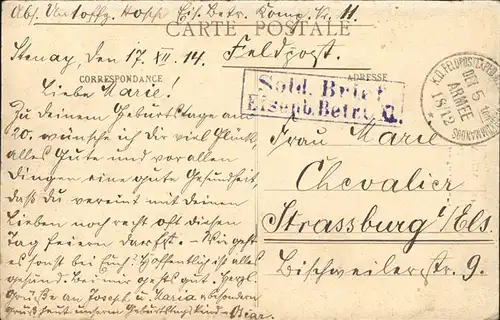 Abs. Untoffz. Hosch Eis. Betr. Komp. Nr. 11.
CARTE POSTALE
Stenay, den 17. XII. 14. Feldpost.
CORRESPONDANCE
ADRESSE
Sold. Brief
Eisenb. Betr.
K.D. FELDPOSTEXPED.
DER 5 ten
ARMEE
18/12
Liebe Marie!
Zu deinem Geburtstage am
20. wünsche ich dir viel Glück,
alles Gute und vor allen
Dingen eine gute Gesundheit,
daß du vereint mit deinen
Lieben noch recht oft diesen
Tag feiern darfst. – Wie geht
es sonst bei Euch? Hoffentlich ist alles
gesund. Bei mir gehts gut. Herzl.
Grüsse an Joseph u. Maria besonders
heut unserem Geburtstagskind
Frau Marie
Chevalier
Strassburg i/Els.
Bischweilerstr. 9.